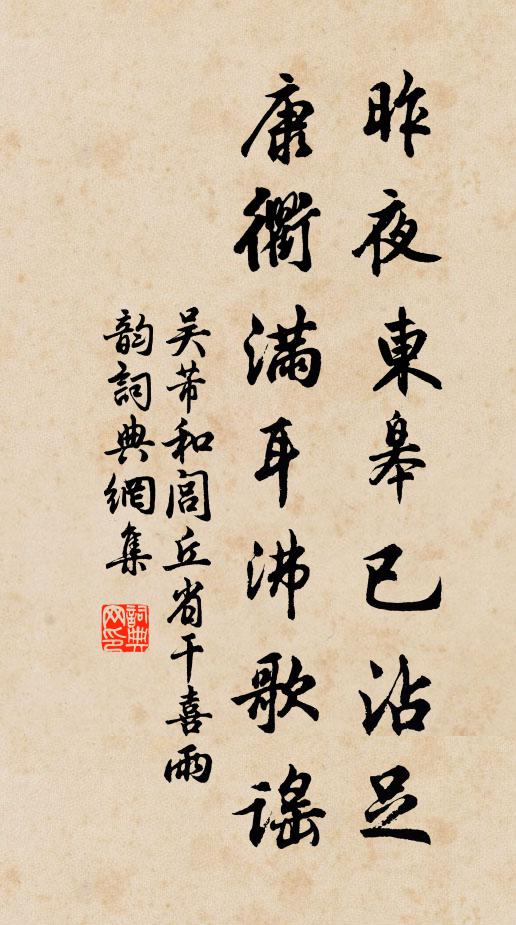 昨夜東皋已沾足
康衢滿耳沸歌謠
吴芾和闾丘省干喜雨
韵詞典網集
詞典網印